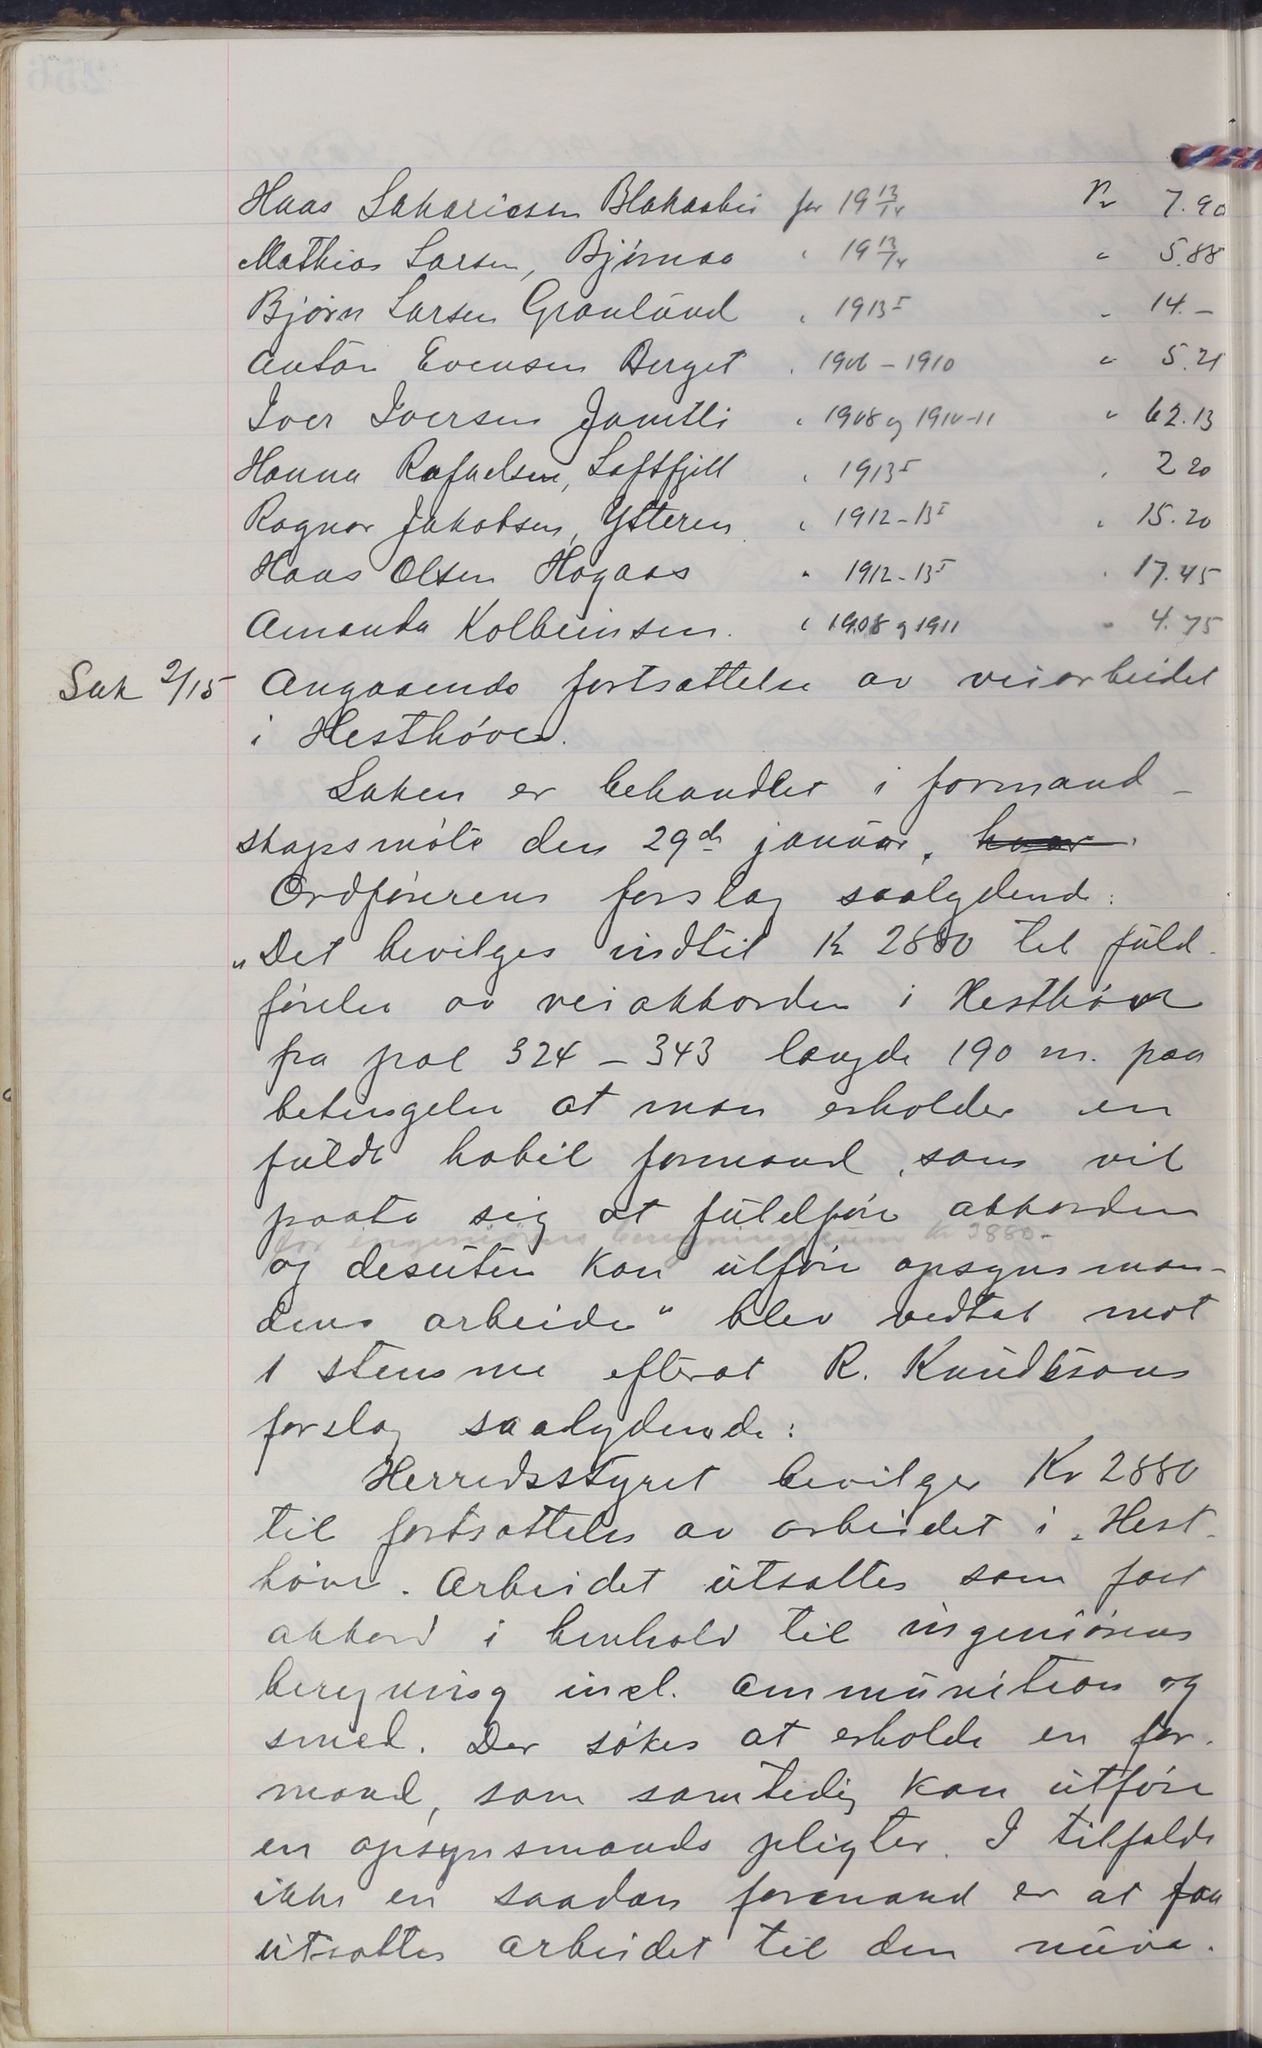 Hans Sakariasen Blakaabei for 19 13/14 Kr 7.90
Mathias Larsen, Bjørnaa " 19 13/14 " 5.88
Bjørn Larsen Grønlund " 1913 I " 14.–
Anton Evensen Berget " 1906 – 1910 " 5.21
Iver Iversen Jamtli " 1908 og 1910–11 " 62.13
Hanna Rafaelsen, Luftfjell " 1913 I " 2 20
Ragnar Jakobsen, Ytteren " 1912–13 I " 15.20
Hans Olsen Høgaas " 1912–13 I " 17.45
Amanda Kolbeinsen. " 1908 og 1911 " 4.75
Sak 2/15 Angaaende fortsættelse av veiarbeidet
i Hesthøven.
Saken er behandlet i formand-
skapsmøte den 29de januar. hvor
Ordførerens forslag saalydende:
"Det bevilges indtil Kr 2880 til fuld-
førelse av veiakkorden i Hesthøven
fra pæl 324 – 343 længde 190 m. paa
betingelse at man erholder en
fuldt habil formand, som vil
paata sig at fuldføre akkorden
for ingeniørens beregningssum kr 2880.-
og desuten kan utføre opsynsman-
dens arbeide" blev vedtat mot
1 stemme efterat R. Knudtsons
forslag saalydende:
Herredsstyret bevilger Kr 2880
til fortsættelse av arbeidet i "Hest-
høve. Arbeidet utsættes som fast
akkord i henhold til ingeniørens
beregning incl. ammunition og
smed. Der søkes at erholde en for-
mand, som samtidig kan utføre
en opsynsmands pligter. I tilfælde
ikke en saadan formand er at faa
utsættes arbeidet til den nuvæ-